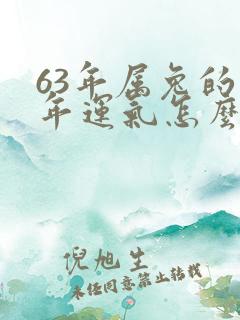 63年属兔的
年运气怎麽
倪旭生
未经同意禁止转载